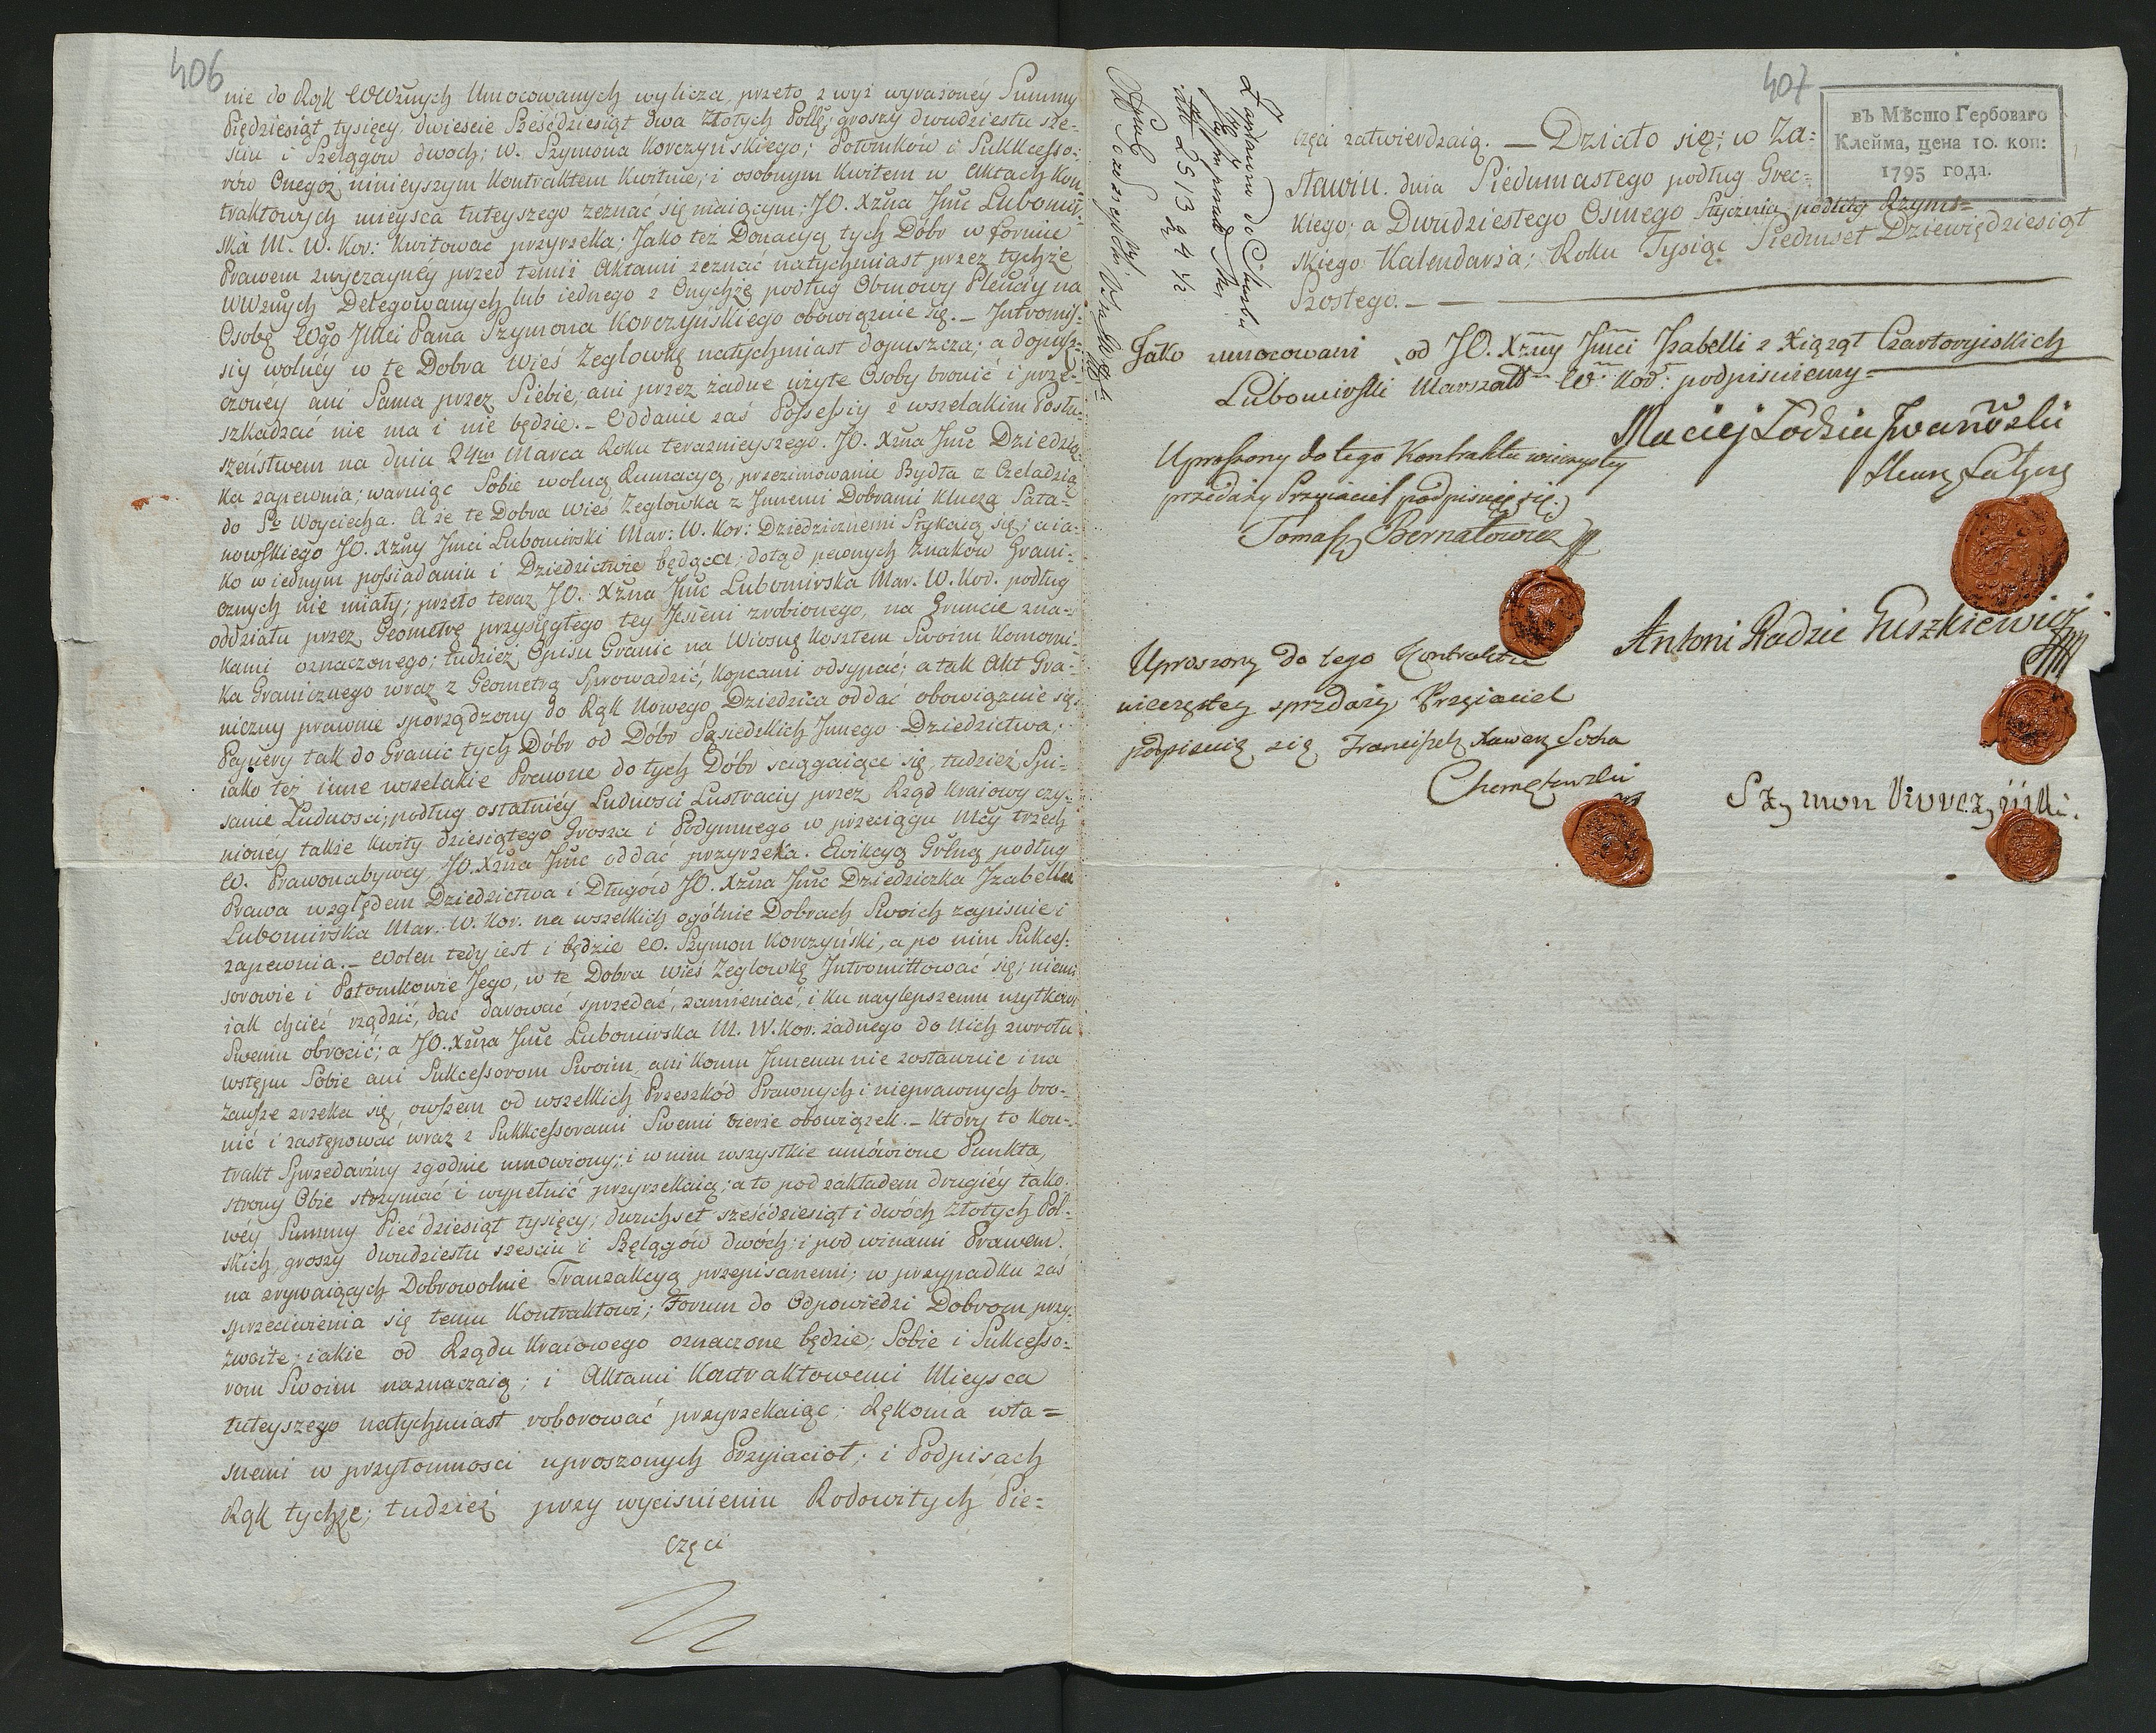 406
nie do Rąk WWżnych Umocowanych wylicza, przeto z wyż wyrażonéy Summy
Piędziesiąt tysięcy, dwieście Sześćdziesiąt dwa Złotych Polls; groszy dwudziestu sze-
ściu i Szelągow dwoch; W. Szymona Korczyńskiego; Potomków i Sukkcesso-
rów Onegoż ninieyszym Kontraktem Kwituie; i osobnym Kwitem w Aktach Kon-
traktowych mieysca tuteyszego zeznać się maiącym; JO. Xżna Jmć Lubomir-
ska M. W. Kor: Kwitować przyrzeka; Jako też Donacyą tych Dóbr w formie
Prawem zwyczaynéy przed temiż Aktami zeznać natychmiast przez tychże
WWżnych Delegowanych, lub iednego z Onychże podług Obmowy Plencyi na
Osobę Wgo Jmci Pana Szymona Korczyńskiego obowiązuie się. – Intromis-
siy wolnéy w te Dobra Wieś Zeglowkę natychmiast dopuszcza; a dopusz-
czonéy ani Sama przez Siebie, ani przez żadne użyte Osoby bronić i prze-
szkadzać nie ma i nie będzie. – Oddanie zaś Possessiy z wszelakim Posłu-
szeństwem na dniu 24mo Marca Roku teraznieyszego. JO. Xżna Jmć Dziedzicz-
ka zapewnia; waruiąc Sobie wolną Rumacyą, przezimowanie Bydła z Czeladzią
do So Woyciecha. A że te Dobra Wieś Zeglowka z Innemi Dobrami Klucza Sata-
nowskiego JO. Xżny Jmci Lubomirski Mar: W. Kor: Dziedzicznemi Stykaią się; a ia-
ko w iednym possiadaniu i Dziedzictwie będące; dotąd pewnych Znaków Grani-
cznych nie miały; przeto teraz JO. Xżna Jmć Lubomirska Mar. W. Kor. podług
oddziału przez Geometrę przysięgłego tey Jesieni zrobionego, na Gruncie zna-
kami oznaczonego; tudzież Opisu Granic na Wiosnę Kosztem Swoim Komorni-
ka Granicznego wraz z Geometrą Sprowadzić, Kopcami odsypać; a tak Akt Gra-
niczny prawnie sporządzony do Rąk Nowego Dziedzica oddać obowiązuie się.
Papiery tak do Granic tych Dóbr od Dóbr Sąsiedzkich Innego Dziedzictwa;
iako też inne wszelakie Prawne do tych Dóbr sciągaiące się, tudzież Spi-
sanie Ludnosci; podług ostatniéy Ludnosci Lustracyi przez Rząd Kraiowy czy-
nioney także Kwity dziesiątego Grosza i Podymnego w przeciągu Mcy trzech
W. Prawonabywcy, JO. Xżna Jmć oddać przyrzeka. Ewikcyą Gólną podług
Prawa względem Dziedzictwa i Długów JO. Xżna Jmć Dziedziczka Izabella
Lubomirska Mar. W. Kor. na wszelkich ogólnie Dobrach Swoich zapisuie i
zapewnia. – Wolen tedy iest i będzie W. Szymon Korczyński, a po nim Sukces-
sorowie i Potomkowie Jego, w te Dobra Wieś Zeglowkę Intromittować się; niemi
iak chcieć rządzić, dać darować sprzedać, zamieniać, i ku naylepszemu użytkowi
Swemu obrocić; a JO. Xżna Jmć Lubomirska M. W. Kor. żadnego do Nich zwrotu
wstępu Sobie ani Sukcessorom Swoim, ani Komu Innemu nie zostawuie i na
zawsze zrzeka się, owszem od wszelkich Przeszkód Prawnych i nieprawnych bro-
nić i zastępować wraz z Sukkcessorami Swemi bierze obowiązek. – Który to Kon-
trakt Sprzedażny zgodnie umowiony; i w nim wszystkie umówione Punkta,
strony Obie strzymać i wypełnić przyrzekaią; a to pod zakładem drugiéy tako-
wéy Summy Pięćdziesiąt tysięcy; dwuchset sześćdziesiąt i dwóch Złotych Pol-
skich, groszy dwudziestu szesciu i Szelągów dwóch; i pod winami Prawem.
na zrywaiących Dobrowolnie Tranzakcyą przepisanemi; w przypadku zaś
sprzeciwienia się temu Kontraktowi; Forum do Odpowiedzi Dobrom przy-
zwoite; iakie od Rządu Kraiowego oznaczone będzie; Sobie i Sukcesso-
rom Swoim naznaczaią; i Aktami Kontraktowemi Mieysca
tuteyszego natychmiast roborować przyrzekaiąc; Rękoma wła=
snemi w przytomnosci uproszonych Przyiacioł; i Podpisach
Rąk tychże; tudzież przy wycisnieniu Rodowitych Pie-
częci
407
въ Мѣсто Гербоваго
Клейма, цена 10. коп:
1795 года.
częci zatwierdzaią. – Działo się; w Za-
sławiu. dnia Siedmnastego podług Grec-
kiego; a Dwudziestego Osmego Stycznia podług Rzyms=
skiego Kalendarza; Roku Tysiąc Siedmset Dziewiędziesiąt
Szostego. –
Jako umocowani od JO. Xżny Jmci Izabelli z Xiążąt Czartoryiskich
Lubomirskli Marszałk W. Kor: podpisuiemy
Maciej Łodzia Iwanowski
Uproszony do tego Kontraktu wieczystey
przedaży Przyiaciel podpisuię się.
Tomasz Bernatowicz
Antoni Radzic Guszkiewicz
Uproszony do tego Kontraktu
wieczystey sprzedaży Przyiaciel
podpisuię się Franciszek Xawery Socha
Szymon Korczyński.